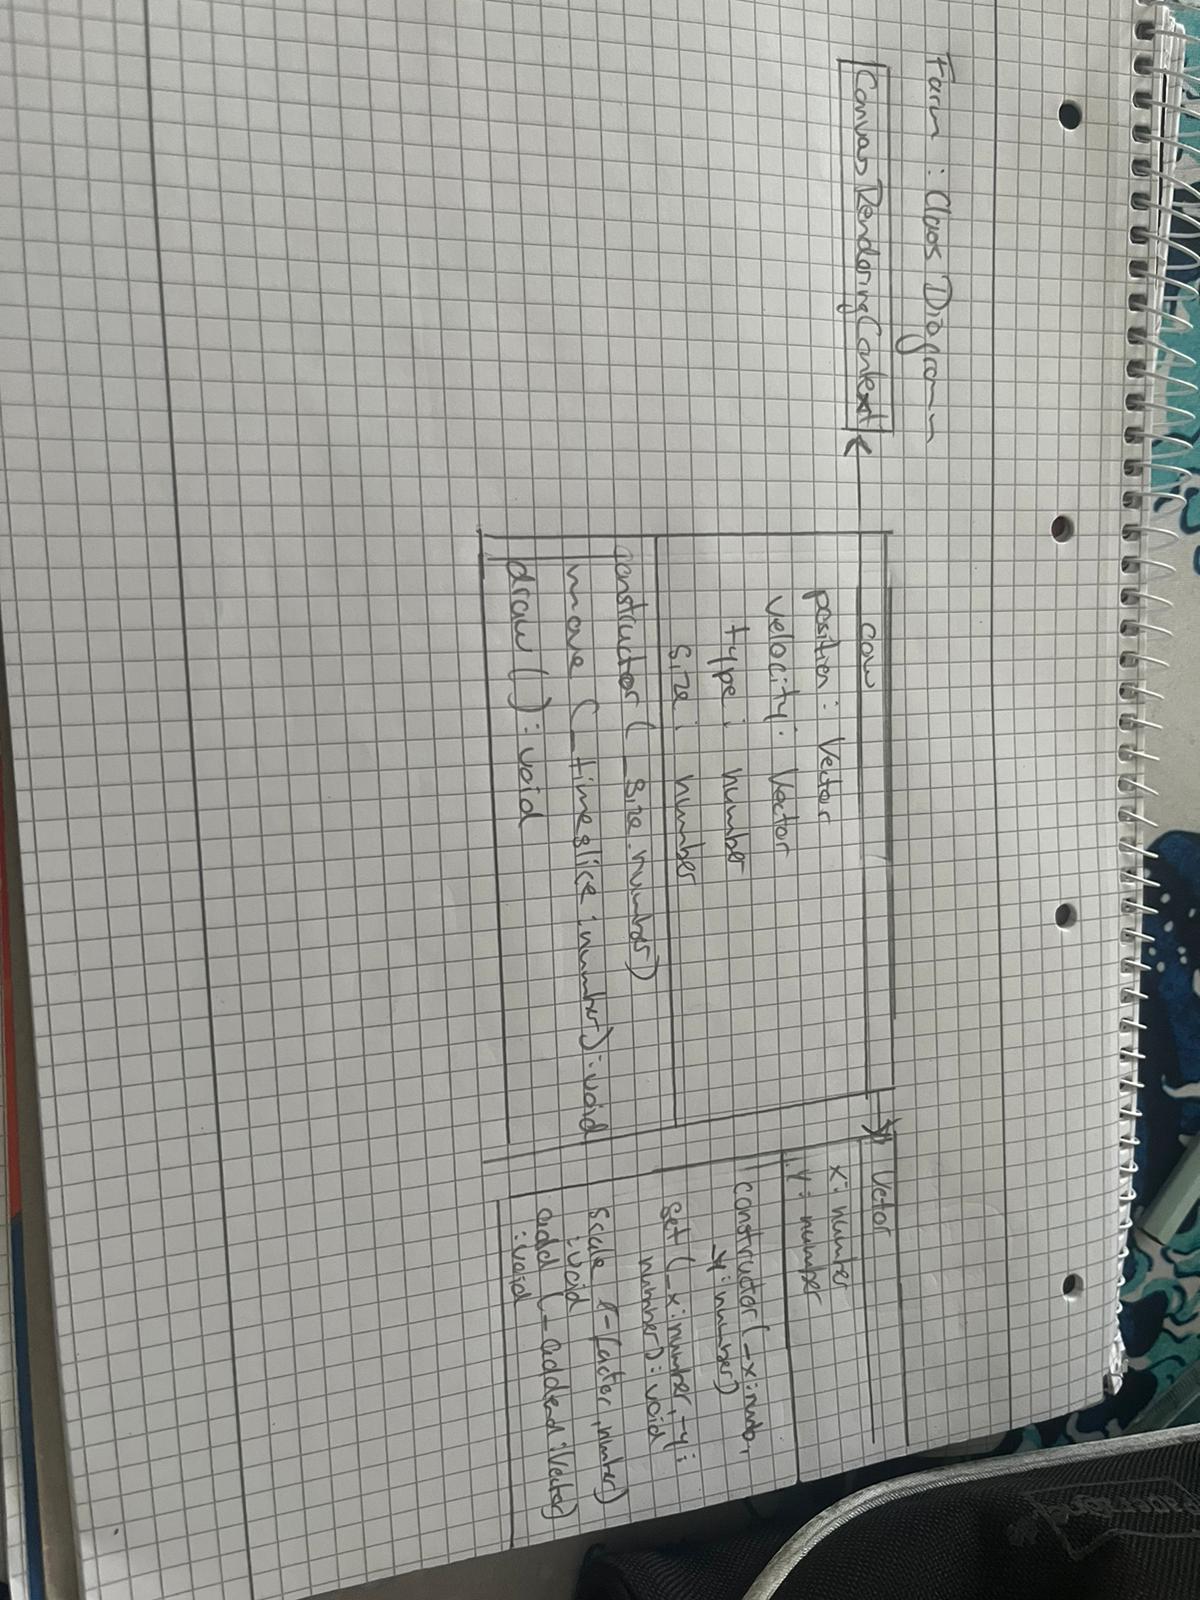 Farm : Class Diagram
CanvasRenderingContext
cow
position : Vector
velocity : Vector
type : number
size : number
constructor (_size.number)
move (_timeslice : number) : void
draw () : void
Vector
x : number
y : number
constructor (_x : numb,
_y : number)
set (_x : number, _y :
number) : void
scale (_factor, number)
: void
add (_addend : Vector)
: void